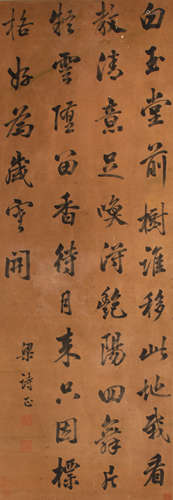 白玉堂前樹誰移此地栽看
教清意足喚得艷陽回舞片
疑雪墮留香待月來只因標
格好為歲寒開
梁詩正